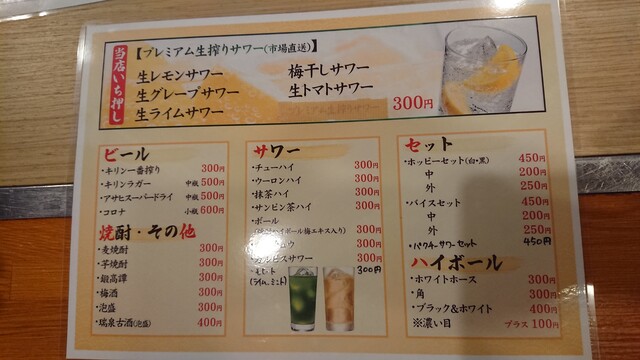 当店いち押し
【プレミアム生搾りサワー(市場直送)】
生レモンサワー 梅干しサワー
生グレープサワー 生トマトサワー
生ライムサワー プレミアム生搾りサワー 300円
ビール
・キリン一番搾り 300円
・キリンラガー 中瓶 500円
・アサヒスーパードライ 中瓶 500円
・コロナ 小瓶 600円
焼酎・その他
・麦焼酎 300円
・芋焼酎 300円
・鍛高譚 300円
・梅酒 300円
・泡盛 300円
・瑞泉古酒(泡盛) 400円
サワー
・チューハイ 300円
・ウーロンハイ 300円
・抹茶ハイ 300円
・サンピン茶ハイ 300円
・ボール
ハイボール梅エキス入り) 300円
300円
カルピスサワー 300円
300円
(ライム、ミント)
セット
・ホッピーセット(白・黒) 450円
中 200円
外 250円
・バイスセット 450円
中 200円
外 250円
・パクチーサワーセット 450円
ハイボール
・ホワイトホース 300円
・角 300円
・ブラック&ホワイト 400円
※濃い目 プラス100円